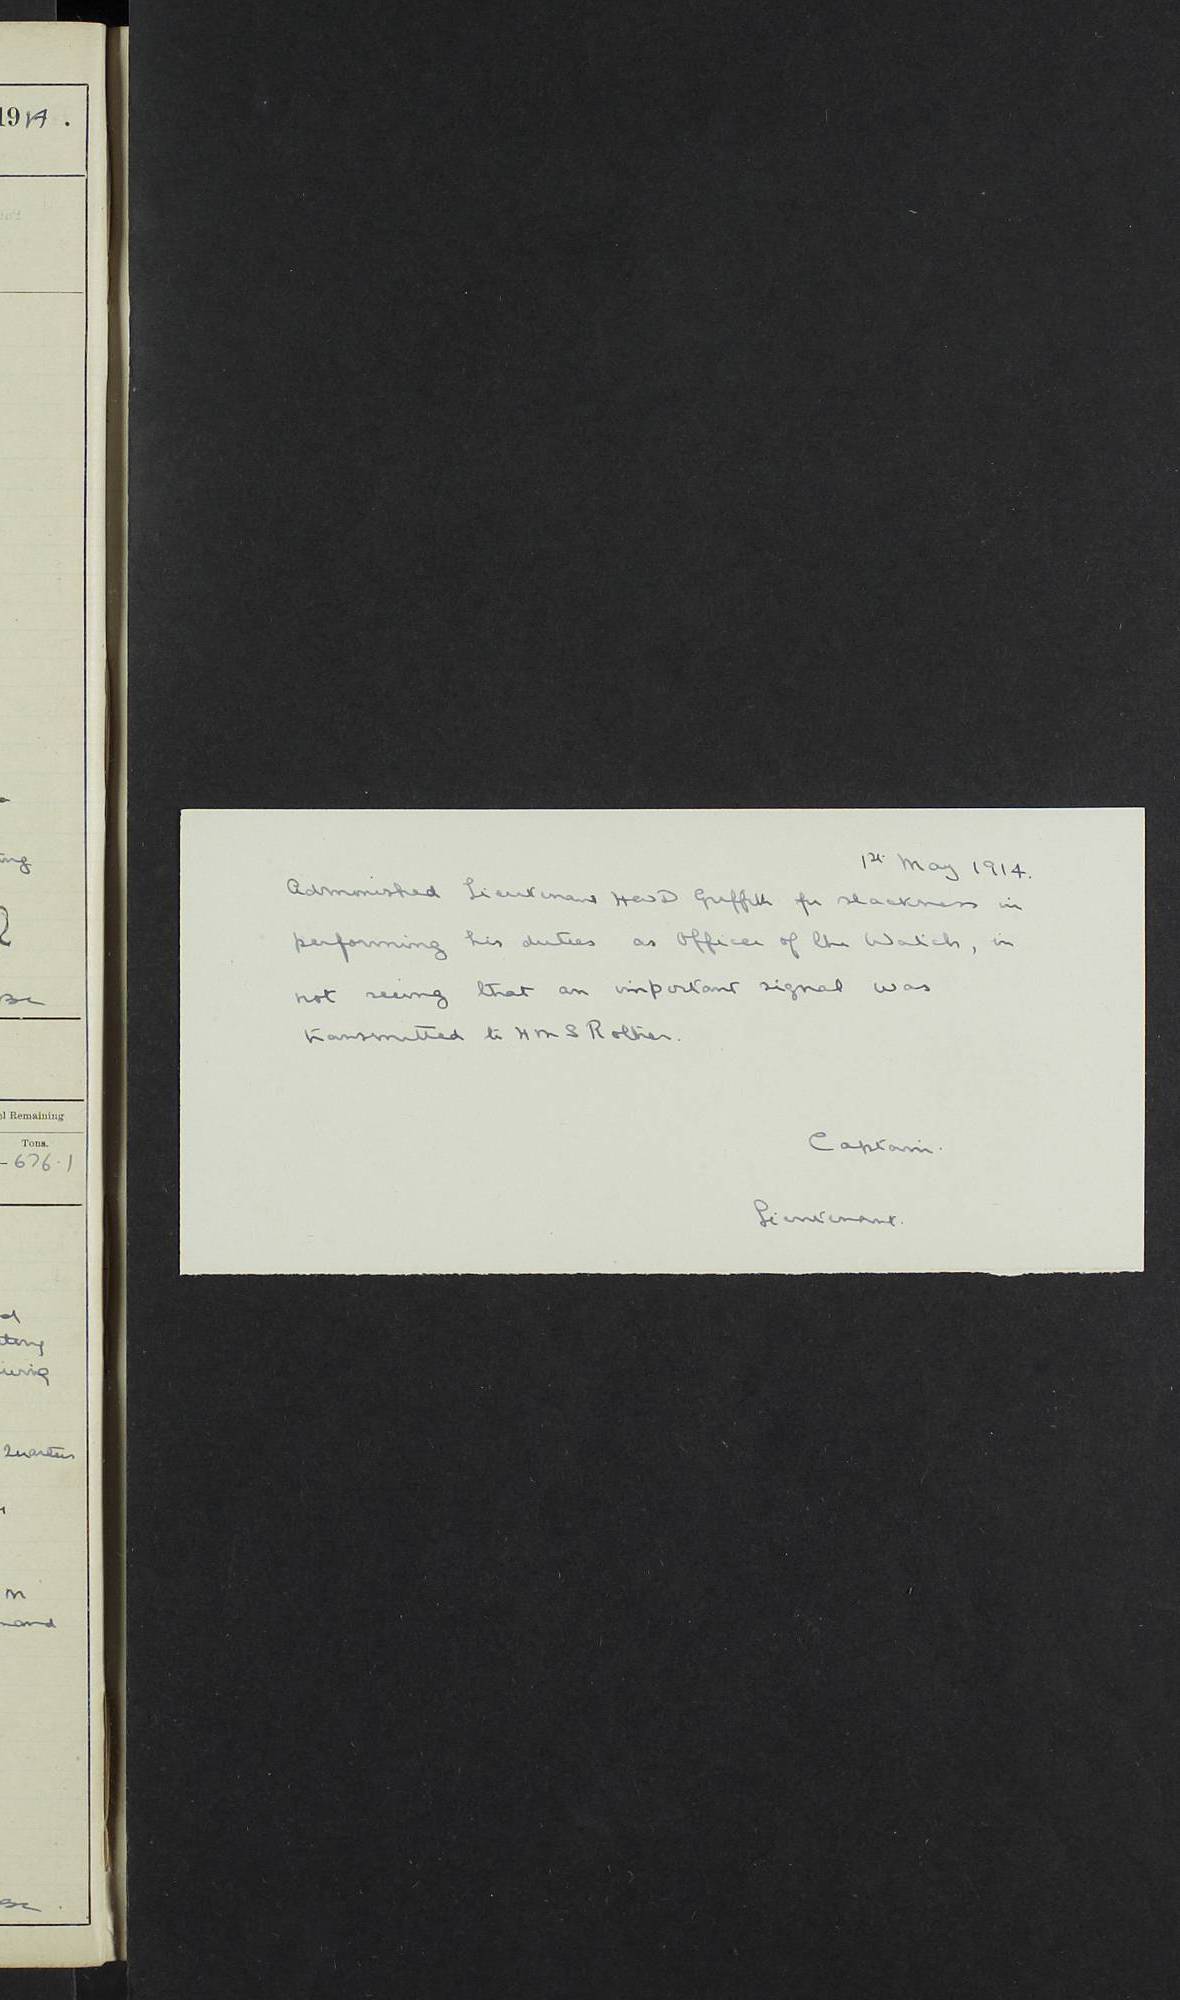 1914.
ing
l Remaining
Tons.
-676.1
Quarters
1st May 1914.
Admonished Lieutenant HWD Griffith for slackness in
performing his duties as Officer of the Watch, in
not seeing that an important signal was
transmitted to HMS Rother.
Captain.
Lieutenant.